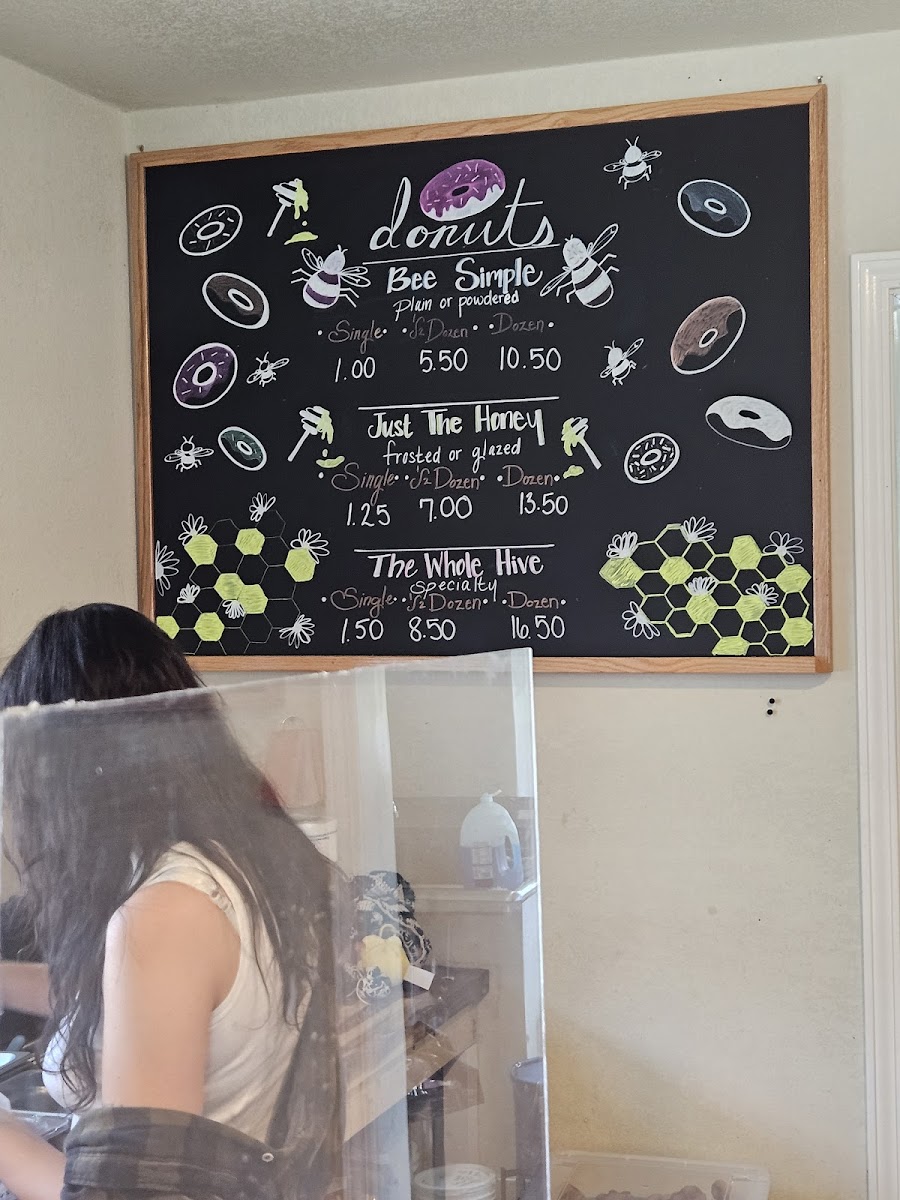 donuts
Bee Simple
Plain or powdered
•Single• •1/2 Dozen• •Dozen•
1.00 5.50 10.50
Just The Honey
frosted or glazed
•Single• •1/2 Dozen• •Dozen•
1.25 7.00 13.50
The Whole Hive
Specialty
•Single• •1/2 Dozen• •Dozen•
1.50 8.50 16.50